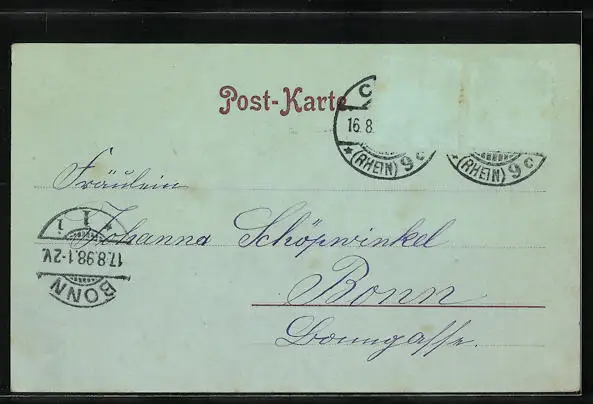 Post-Karte
C
16.8.
* (RHEIN) 9c
* (RHEIN) 9c
Fräulein
Johanna Schöpwinkel
1 1
17.8.98.1-2V.
BONN
Bonn
Bonngasse.